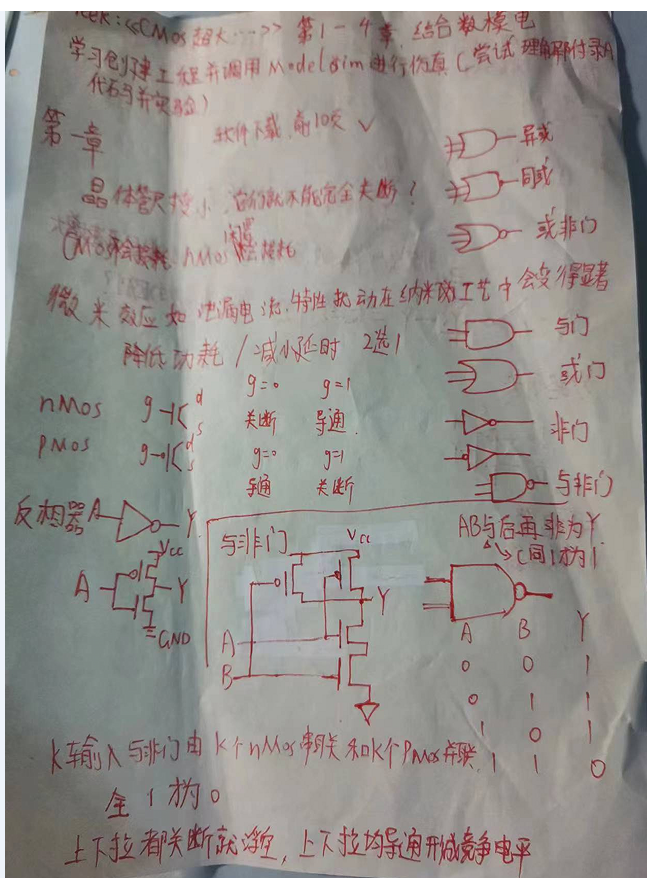 《CMos超大…》 第1-4章，结合数模电
学习创建工程并调用Modelsim进行仿真（尝试理解附录A
代码并实验）
第一章
软件下载 前10页 ✓
异或
晶体管尺寸 小，它们就不能完全关断？
同或
或非门
CMos 会 耗 nMos 耗
微米效应如泄漏电流、特性扰动在纳米 工艺中会变得显著
与门
降低功耗/减小延时 2选1
或门
nMos g d s g=0 g=1
关断 导通
非门
pMos g d s g=0 g=1
导通 关断
与非门
反相器 A Y
Vcc
A Y
GND
与非门 Vcc
Y
A
B
AB与后再非为Y
同1才为1
A B Y
0 0 1
0 1 1
1 0 1
1 1 0
K输入与非门由K个nMos串联和K个PMos并联
全1才为0
上下拉都关断就浮空，上下拉均导通形成竞争电平